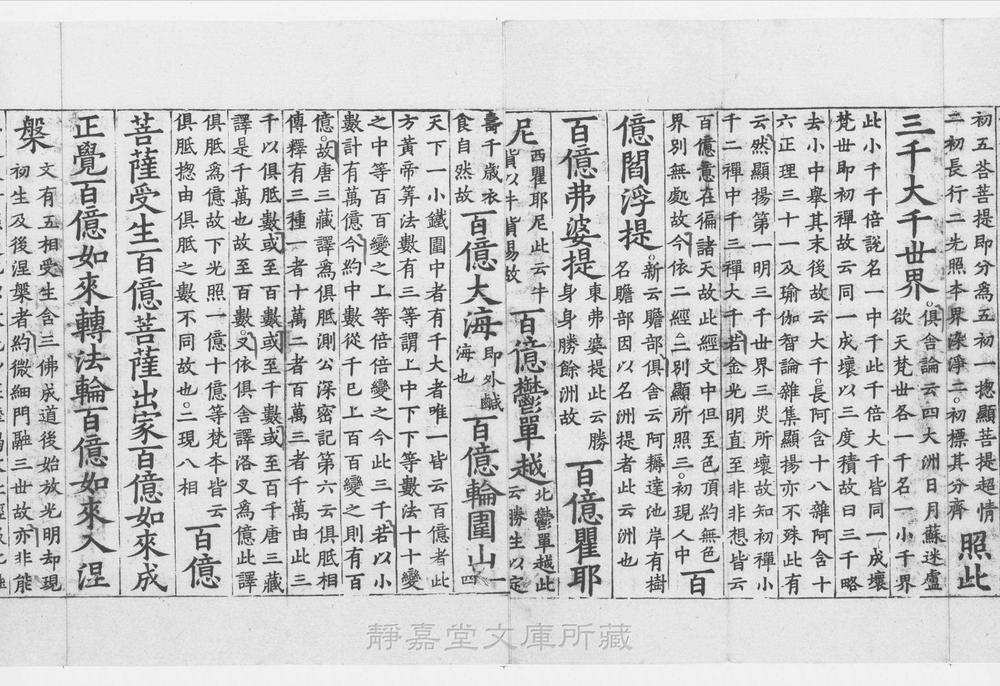 初五菩提即分爲五初一揔顯菩提超情
二初長行二先照本界後淨二初標其分齊
照此
三千大千世界
俱舍論云四大洲日月蘇迷盧
欲天梵世各一千名一小千界
此小千千倍說名一中千此千倍大千皆同一成壞
梵世即初禪故云同一成壞以三度積故曰三千略
去小中舉其末後故云大千長阿含十八雜阿含十
六正理三十一及瑜伽智論雜集顯揚亦不殊此有
云然顯揚第一明三千世界三災所壞故知初禪小
千二禪中千三禪大千若金光明直至非非想皆云
百億意在徧諸天故此經文中但至色頂約無色
界別無處故今依二經二別顯所照三初現人中
百
億閻浮提
新云贍部俱舍云阿耨達池岸有樹
名贍部因以名洲提者此云洲也
百億弗婆提
東弗婆提此云勝
身身勝餘洲故
百億瞿耶
尼
西瞿耶尼此云牛
貨以牛貨易故
百億鬱單越
北鬱單越此
云勝生以定
壽千歲衣
食自然故
百億大海
即外鹹
海也
百億輪圍山
一
四
天下一小鐵圍中者有千大者唯一皆云百億者此
方黃帝筭法數有三等謂上中下下等數法十十變
之中等百百變之上等倍倍變之今此三千若以小
數計有萬億今約中數從千已上百百變之則有百
億故唐三藏譯爲俱胝測公深密記第六云俱胝相
傳釋有三種一者十萬二者百萬三者千萬由此三
千以俱胝數或至百數或至千數或至百千唐三藏
譯是千萬也故至百數又依俱舍譯洛叉爲億此譯
俱胝爲億故下光照一億十億等梵本皆云
俱胝揔由俱胝之數不同故也二現八相
百億
菩薩受生百億菩薩出家百億如來成
正覺百億如來轉法輪百億如來入涅
槃
文有五相受生含三佛成道後始放光明却現
初生及後涅槃者約微細門融三世故亦非能
靜嘉堂文庫所藏